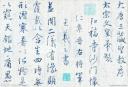 大唐三藏聖教序
太宗文皇帝製
弘福寺沙門懷
仁集晉右將軍
王羲之書
蓋聞二儀有像顯
覆載以含生四時無
形潛寒暑以化物是
以窺天鑑地庸愚